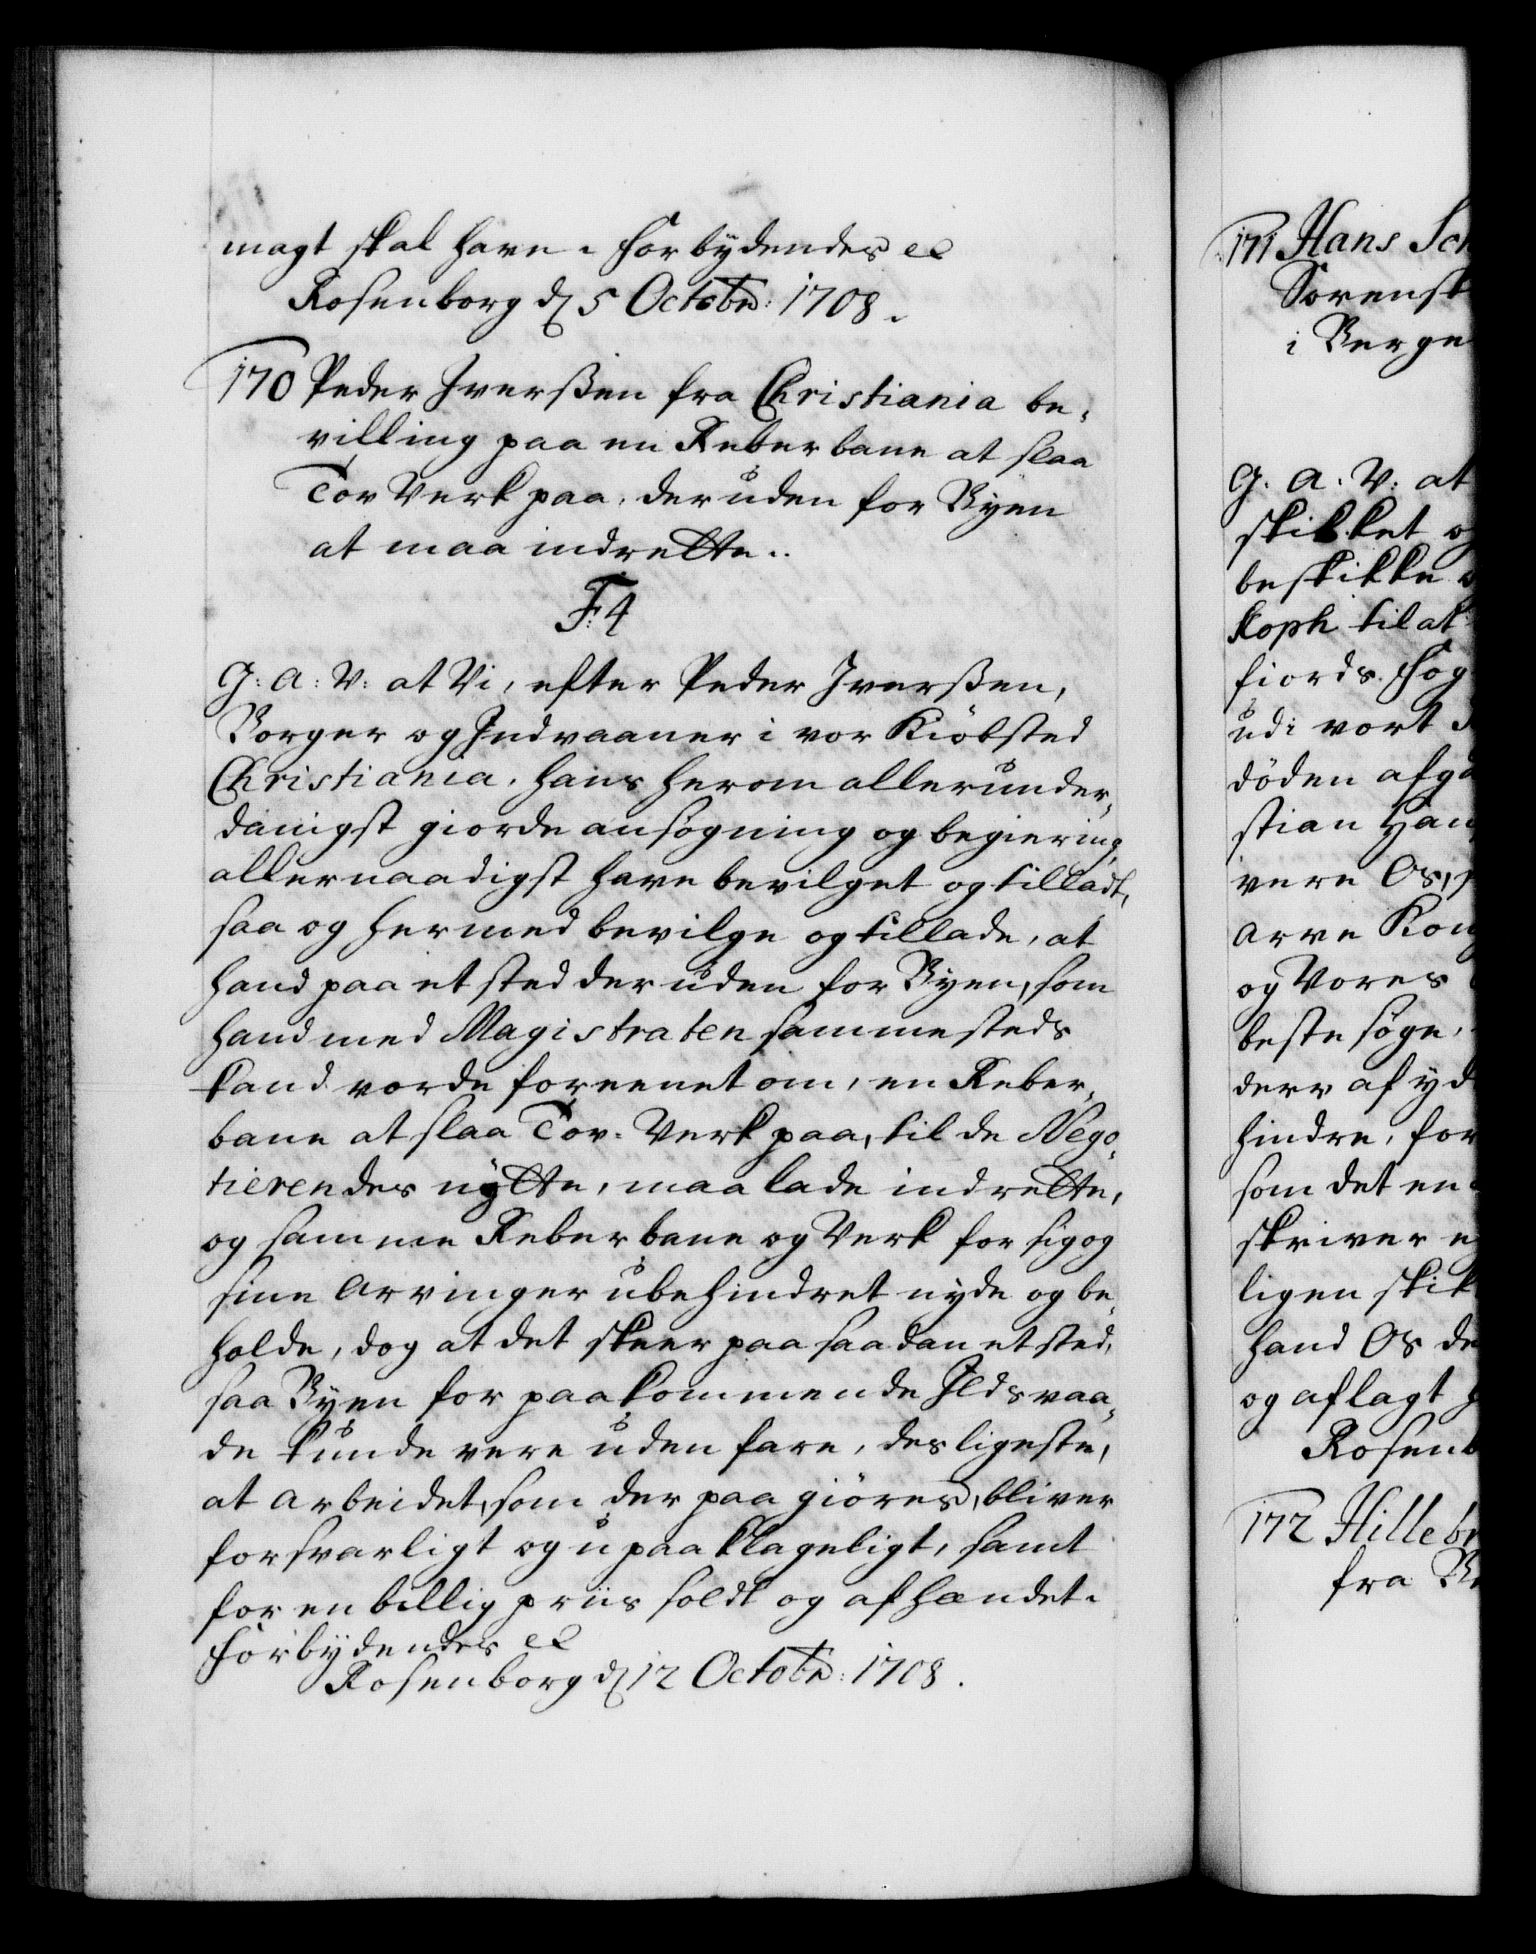 magt skal have. Forbydendes ec
Rosenborg d 5 Octobr: 1708.
170 Peder Iverßen fra Christiania be-
villing paa en Reberbane at slaa
Tov Verk paa, der uden for Byen
at maa indrette.
F:4
G: A: V: at Vi, efter Peder Iverßen,
Borger og Indvaaner i vor Kiöbsted
Christiania, hans herom allerunder-
danigst giorde ansögning og begiering
allernaadigst have bevilget og tilladt,
saa og hermed bevilge og tillade, at
hand paa et sted der uden for Byen, som
hand med Magistraten sammesteds
kand vorde foreenet om, en Reber-
bane at slaa Tov-Verk paa, til de Nego-
tierendes nytte, maa lade indrette,
og samme Reberbane og Verk for sig og
sine Arvinger ubehindret nyde og be-
holde, dog at det skeer paa saadan et sted,
saa Byen for paakommende Ildsvaa-
de kunde vere uden fare, desligeste,
at arbeidet, som der paa giöres, bliver
forsvarligt og upaaklageligt, samt
for en billig priis soldt og afhændet.
Forbydendes ec
Rosenborg d 12 Octobr: 1708.
171 Hans Sch
Sorensk
i Berge
G. A. V: at
skikket og
beskikke
Koph til at
fiords Fog
udi vort
döden afga
stian Han
vere Os,
Arve Kon
og Vores
beste söge,
derr af yd
hindre, for
som det en
skriver e
ligen skik
hand Os de
og aflagt h
Rosenb
172 Hillebr
fra Be